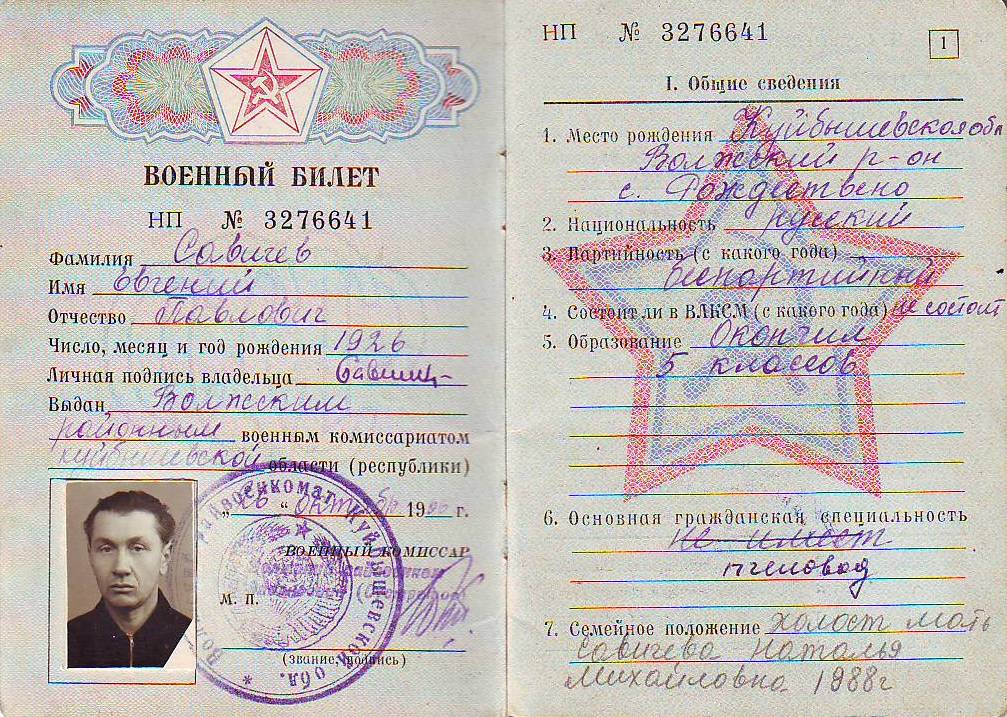 ВОЕННЫЙ БИЛЕТ
НП № 3276641
Фамилия Савичев
Имя Евгений
Отчество Павлович
Число, месяц и год рождения 1926
Личная подпись владельца Савич
Выдан Волжским
районным военным комиссариатом
Куйбышевской области (республики)
„26“ октября 19 г.
ВОЕННЫЙ КОМИССАР
М. П.
(звание, подпись)
райвоенкомат Куйбышевской обл.
НП № 3276641
1
I. Общие сведения
1. Место рождения Куйбышевская обл
Волжский р-он
с. Рождествено
2. Национальность русский
3. Партийность (с какого года)
беспартийный
4. Состоит ли в ВЛКСМ (с какого года) не состоит
5. Образование Окончил
5 классов
6. Основная гражданская специальность
не имеет
пчеловод
7. Семейное положение холост мать
Савичева Наталья
Михайловна 1988г